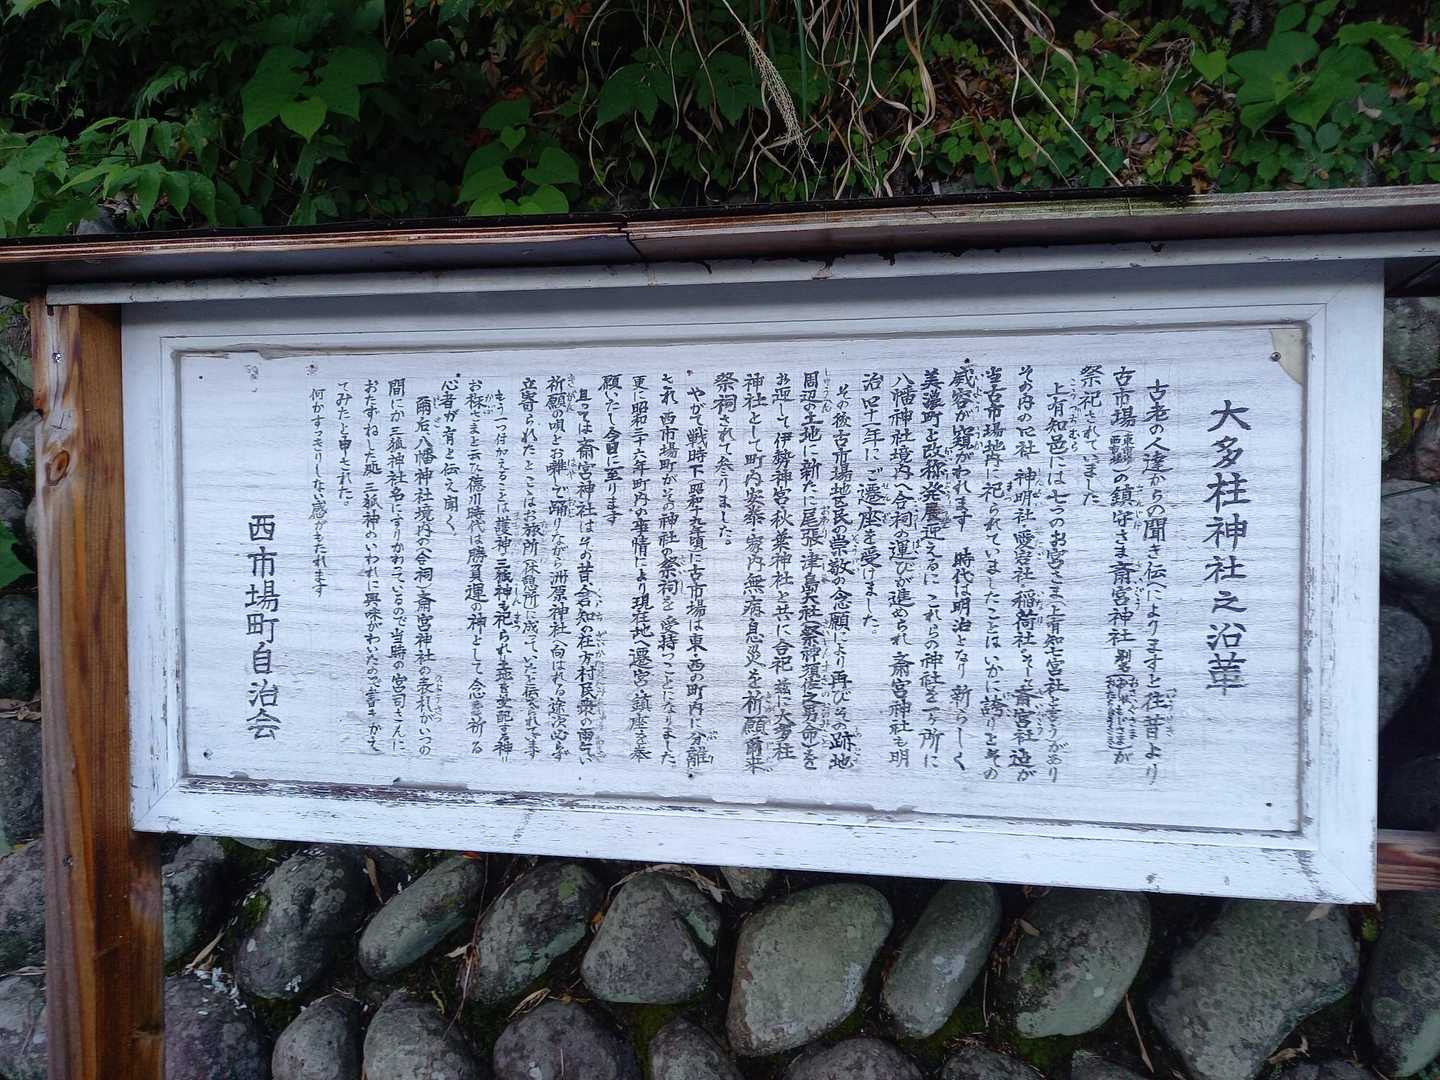 大多柱神社之沿革
古老の人達からの聞き伝へによりますと往昔より
古市場(東市場西市場)の鎮守さま斎宮神社が
祭祀されていました
上有知邑には七つのお宮さま(上有知七宮社と言うがあり
その内の四社 神明社 愛宕社 稲荷社 そして斎宮社 迄が
当古市場地内に祀られていましたことはいかに誇りとその
威容が窺がわれます 時代は明治となり 新らしく
美濃町と改称発展迎えるに これらの神社を一ヶ所に
八幡神社境内へ合祠の運びが進められ 斎宮神社も明
治四十一年にご遷座を受けました。
その後古市場地区民の崇敬の念願により再びその跡地
周辺の土地に新たに尾張津島大社(祭神須佐之男命)を
お迎して伊勢神宮秋葉神社と共に合祀 茲に大多柱
神社として町内安泰家内無病息災を祈願爾来
祭祠されて参りました。
やがて戦時下(昭和十九年頃)に古市場は東・西の町内に分離
され 西市場町がその神社の祭祠を受持つことになりました
更に昭和三十六年町内の事情により現在地へ遷宮ご鎮座を
願いたし今日に至ります
且つては斎宮神社はその昔、倉知の在方村民衆の雨乞い
祈願の唄とお囃しで踊りながら洲原神社へ向はれる途次必らず
立寄られたとここはお旅所(休憩所)に成っていたと伝えられています
もう一つ付加えることは護神の三狐神も祀られ土地を支配する神
お稼さまと云た徳川時代は勝負運の神として念を祈る
心者が有と伝え聞く、
爾后、八幡神社境内へ合祠の斎宮神社の表札がいつの
間にか三狐神社名にすりかわっているので当時の宮司さんに
おたずねした処 三狐神のいわれに興味がわいたので書きかえ
てみたと申された。
何かすっきりしない感がもたれます
西市場町自治会